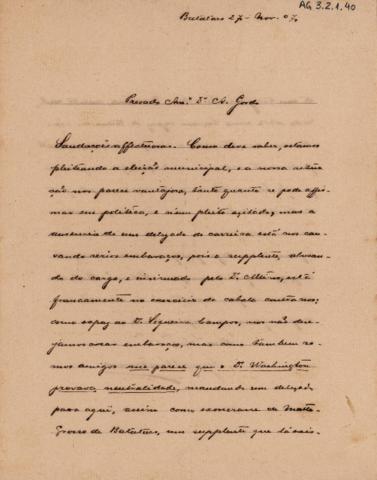 AG 3.2.1.40
Batataes 27 - Nov. 07
Presado Am.º Dr A. Gordo
Saudações affectuosas. Como deve saber, estamos
pleiteando a eleição municipal, e a nossa situa-
ção nos parece vantajosa, tanto quanto se pode affir-
mar em politica, e n'um pleito agitado, mas a
ausencia de um delegado de carreira está nos cau-
sando serios embaraços, pois o supplente, abusan-
do do cargo, e insinuado pelo Dr. está
francamente no exercicio de cabala contra nós;
como rapaz ao Dr. Siqueira Campos, nos não dese-
jamos crear embaraço, mas como tambem so-
mos amigos me parece que o Dr. Washington
provará neutralidade, mandando um delegado
para aqui, assim como exonerar de Matto-
Grosso de Batataes, um supplente que lá exis-